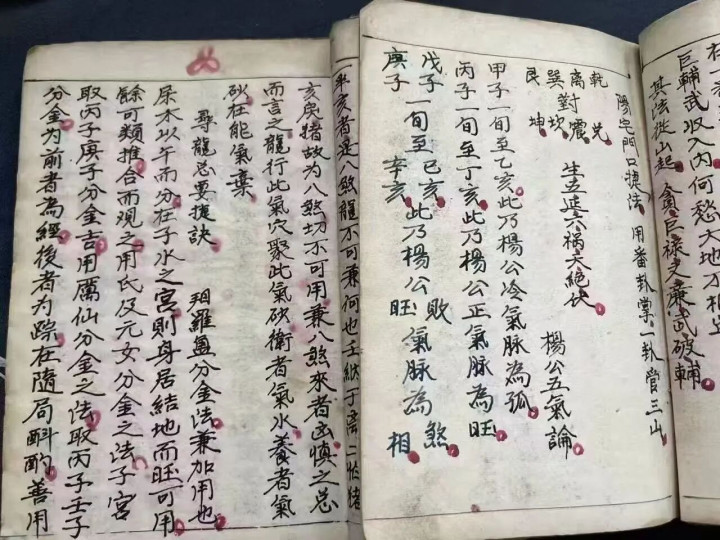 巨輔武收入内何愁大地不相
其法從山起 貪巨祿文廉武破輔
陽宅門口捷法 用番卦掌一卦管三山
乾 兌
离 對 震
巽 坎
艮 坤
生五延六禍天絕伏
楊公五氣論
甲子一旬至乙亥此乃楊公冷氣脉為孤
丙子一旬至丁亥此乃楊公正氣脉為旺
戊子一旬至己亥此乃楊公敗氣脉為煞
庚子 辛亥 旺 相
亥者是八煞龍不可兼何也壬
亥戌猪故为八煞切不可用兼八煞來者凶慎之总
而言之龍行此氣穴聚此氣砂衛者氣水養者氣
砂在能氣棄
尋龍总要捷訣
羅盘分金法兼加用也
屎木以午而分在子水之宮則身居結地而旺可用
餘可類推合而观之用氏及元女分金之法子宮
取丙子庚子分金吉用厲仙分金之法取丙子壬子
分金为前者為經後者为踪在隨局斟酌善用